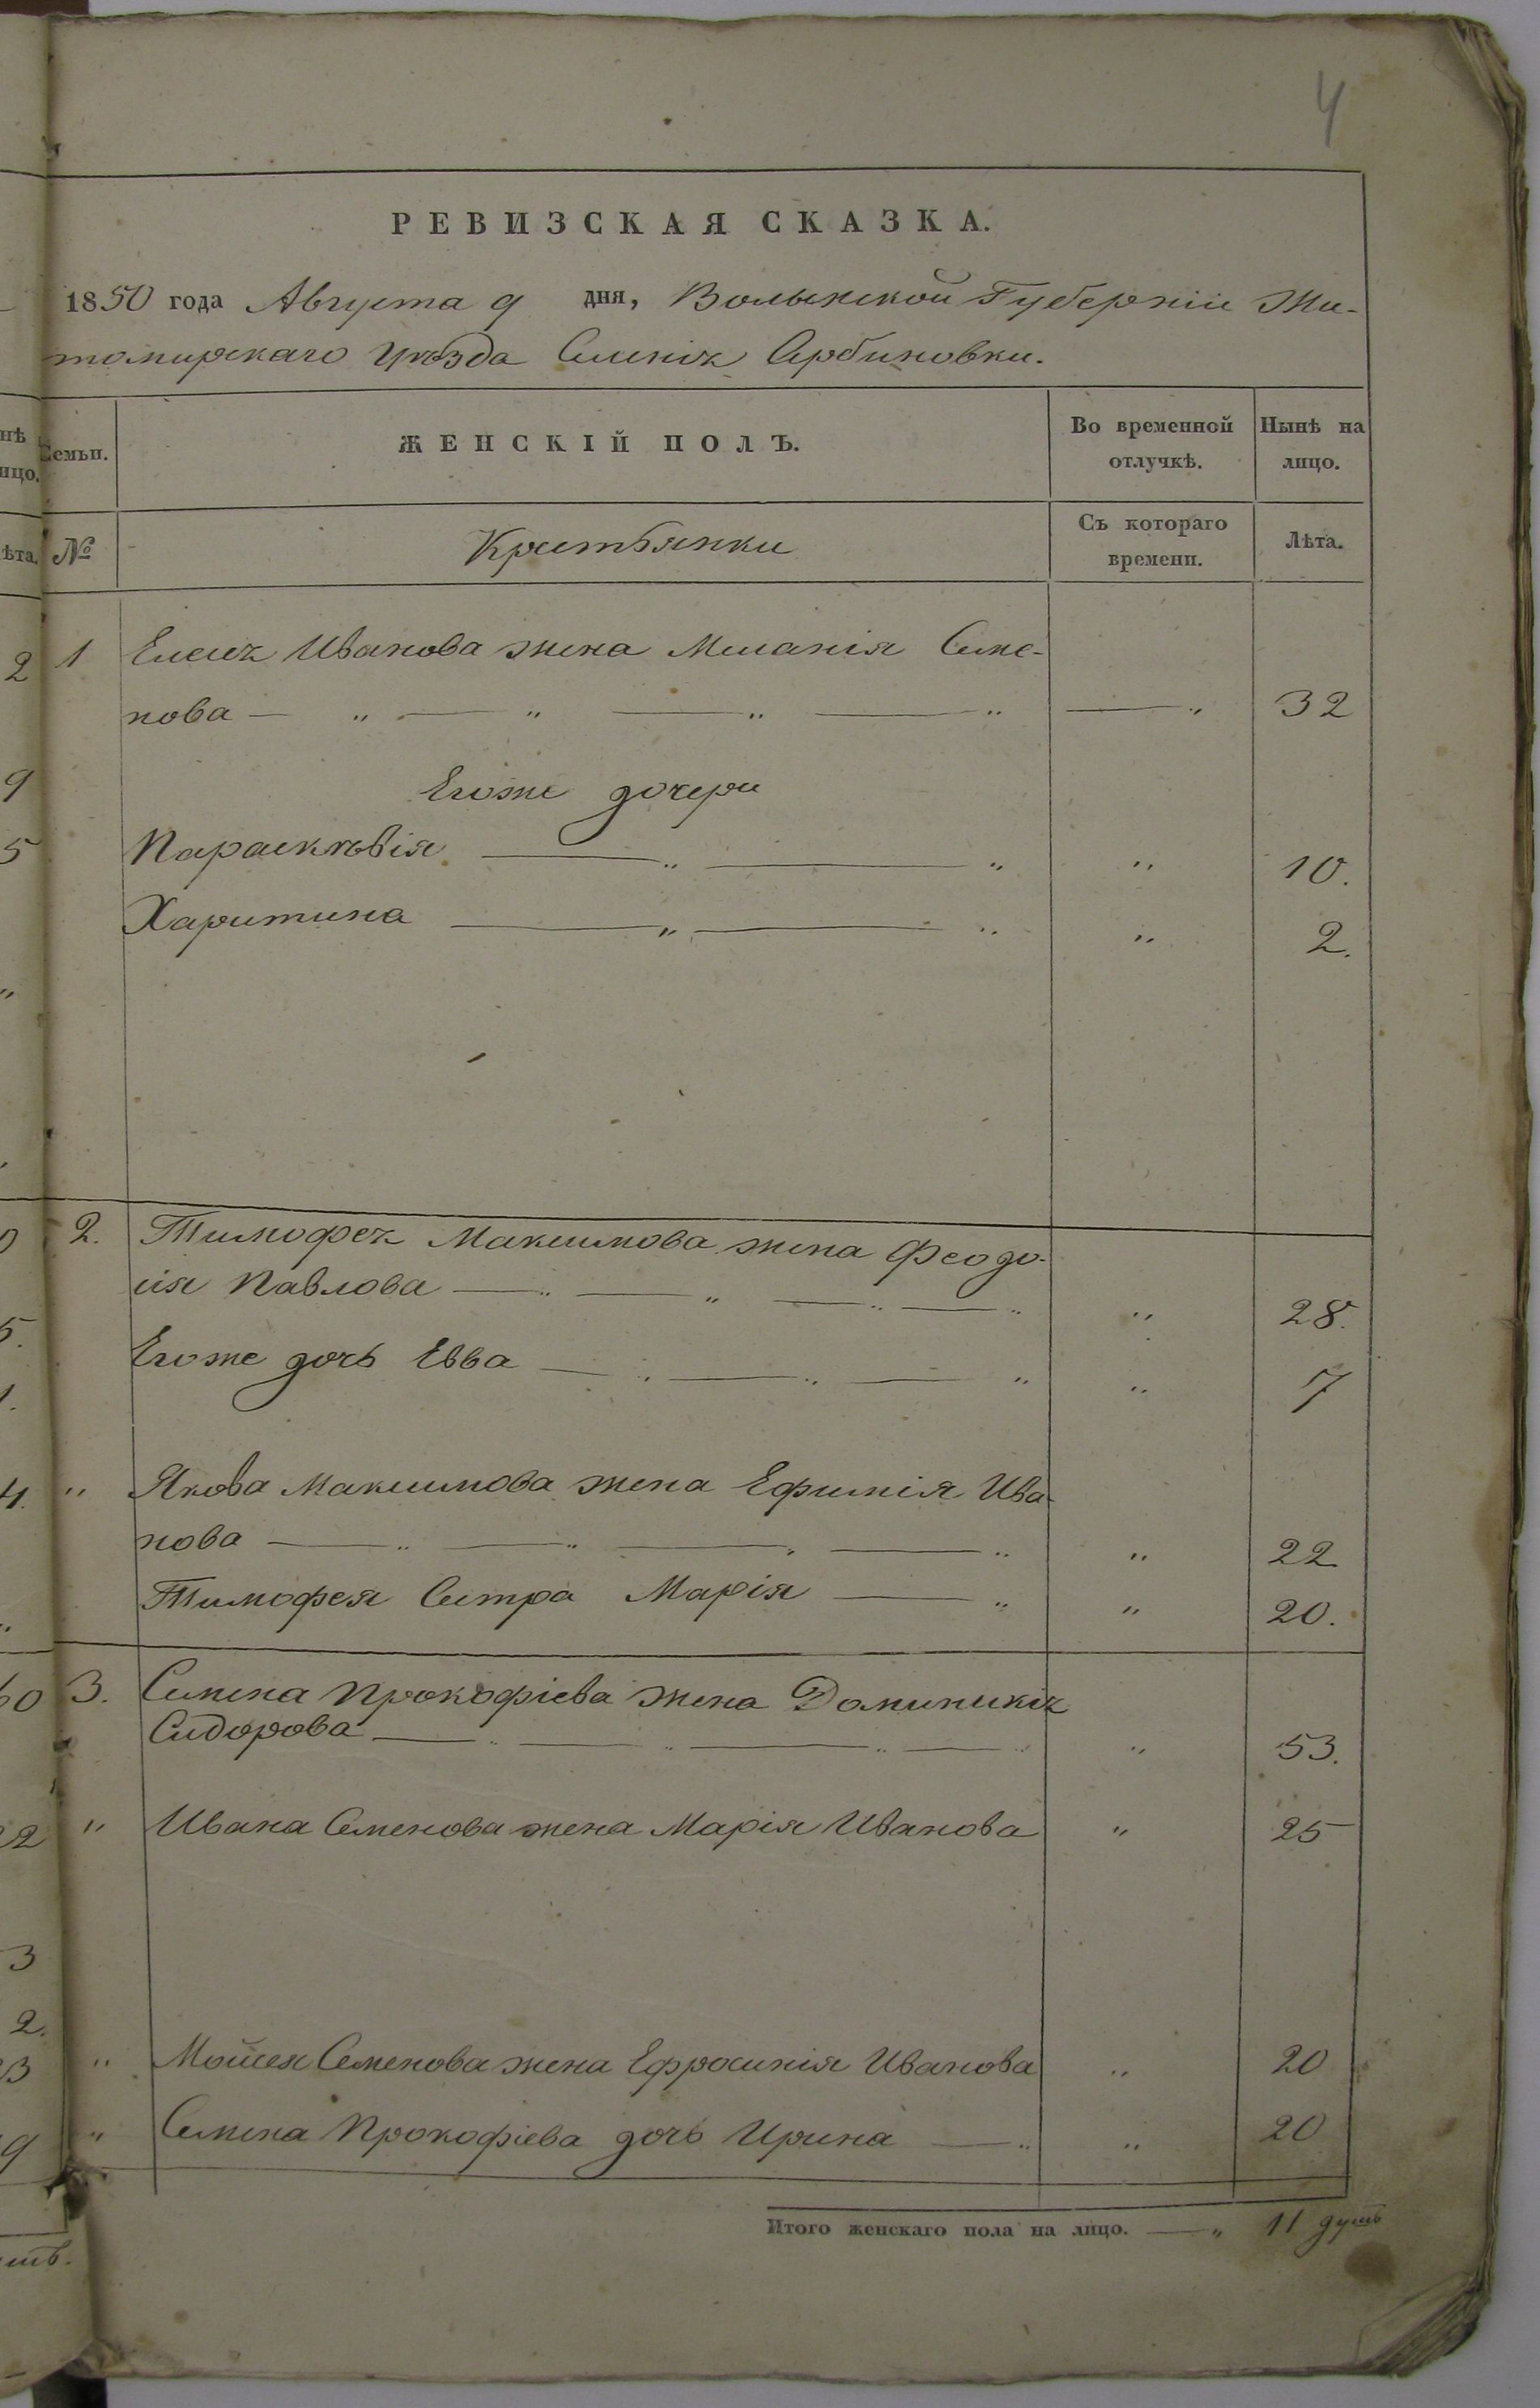 4
РЕВИЗСКАЯ СКАЗКА.
1850 года Августа 9 дня, Волынской Губерніи Жи-
томирскаго Уѣзда Арбиновки.
нѣ
ицо.
Семьи.
ЖЕНСКІЙ ПОЛЪ.
Во временной отлучкѣ.
Нынѣ на лицо.
ѣта.
№
Крестьянки
Съ котораго времени.
Лѣта.
2 1 Иванова жена Меланія Семе-
нова — „ — „ — „ — „ — „ 32
9
Егоже дочери
5 Параскѣвія — „ — „ „ 10.
Харитина — „ — „ „ 2.
2. Максимова жена Феодо-
сія Павлова — „ — „ — „ — „ „ 28.
5. Егоже дочь Евва — „ — „ — „ „ 7
1.
4. „ Якова Максимова жена Ефимія Ива-
нова — „ — „ — „ — „ „ 22
Тимофея Сестра Марія — „ „ 20.
60 3. Семена Прокофіева жена
Сидорова — „ — „ — „ — „ „ 53.
22 „ Ивана Семенова жена Марія Иванова „ 25
3
2.
3 „ Мойсея Семенова жена Ефросинія Иванова „ 20
9 „ Семена Прокофіева дочь Ирина — „ „ 20
Итого женскаго пола на лицо. — „ 11 душъ